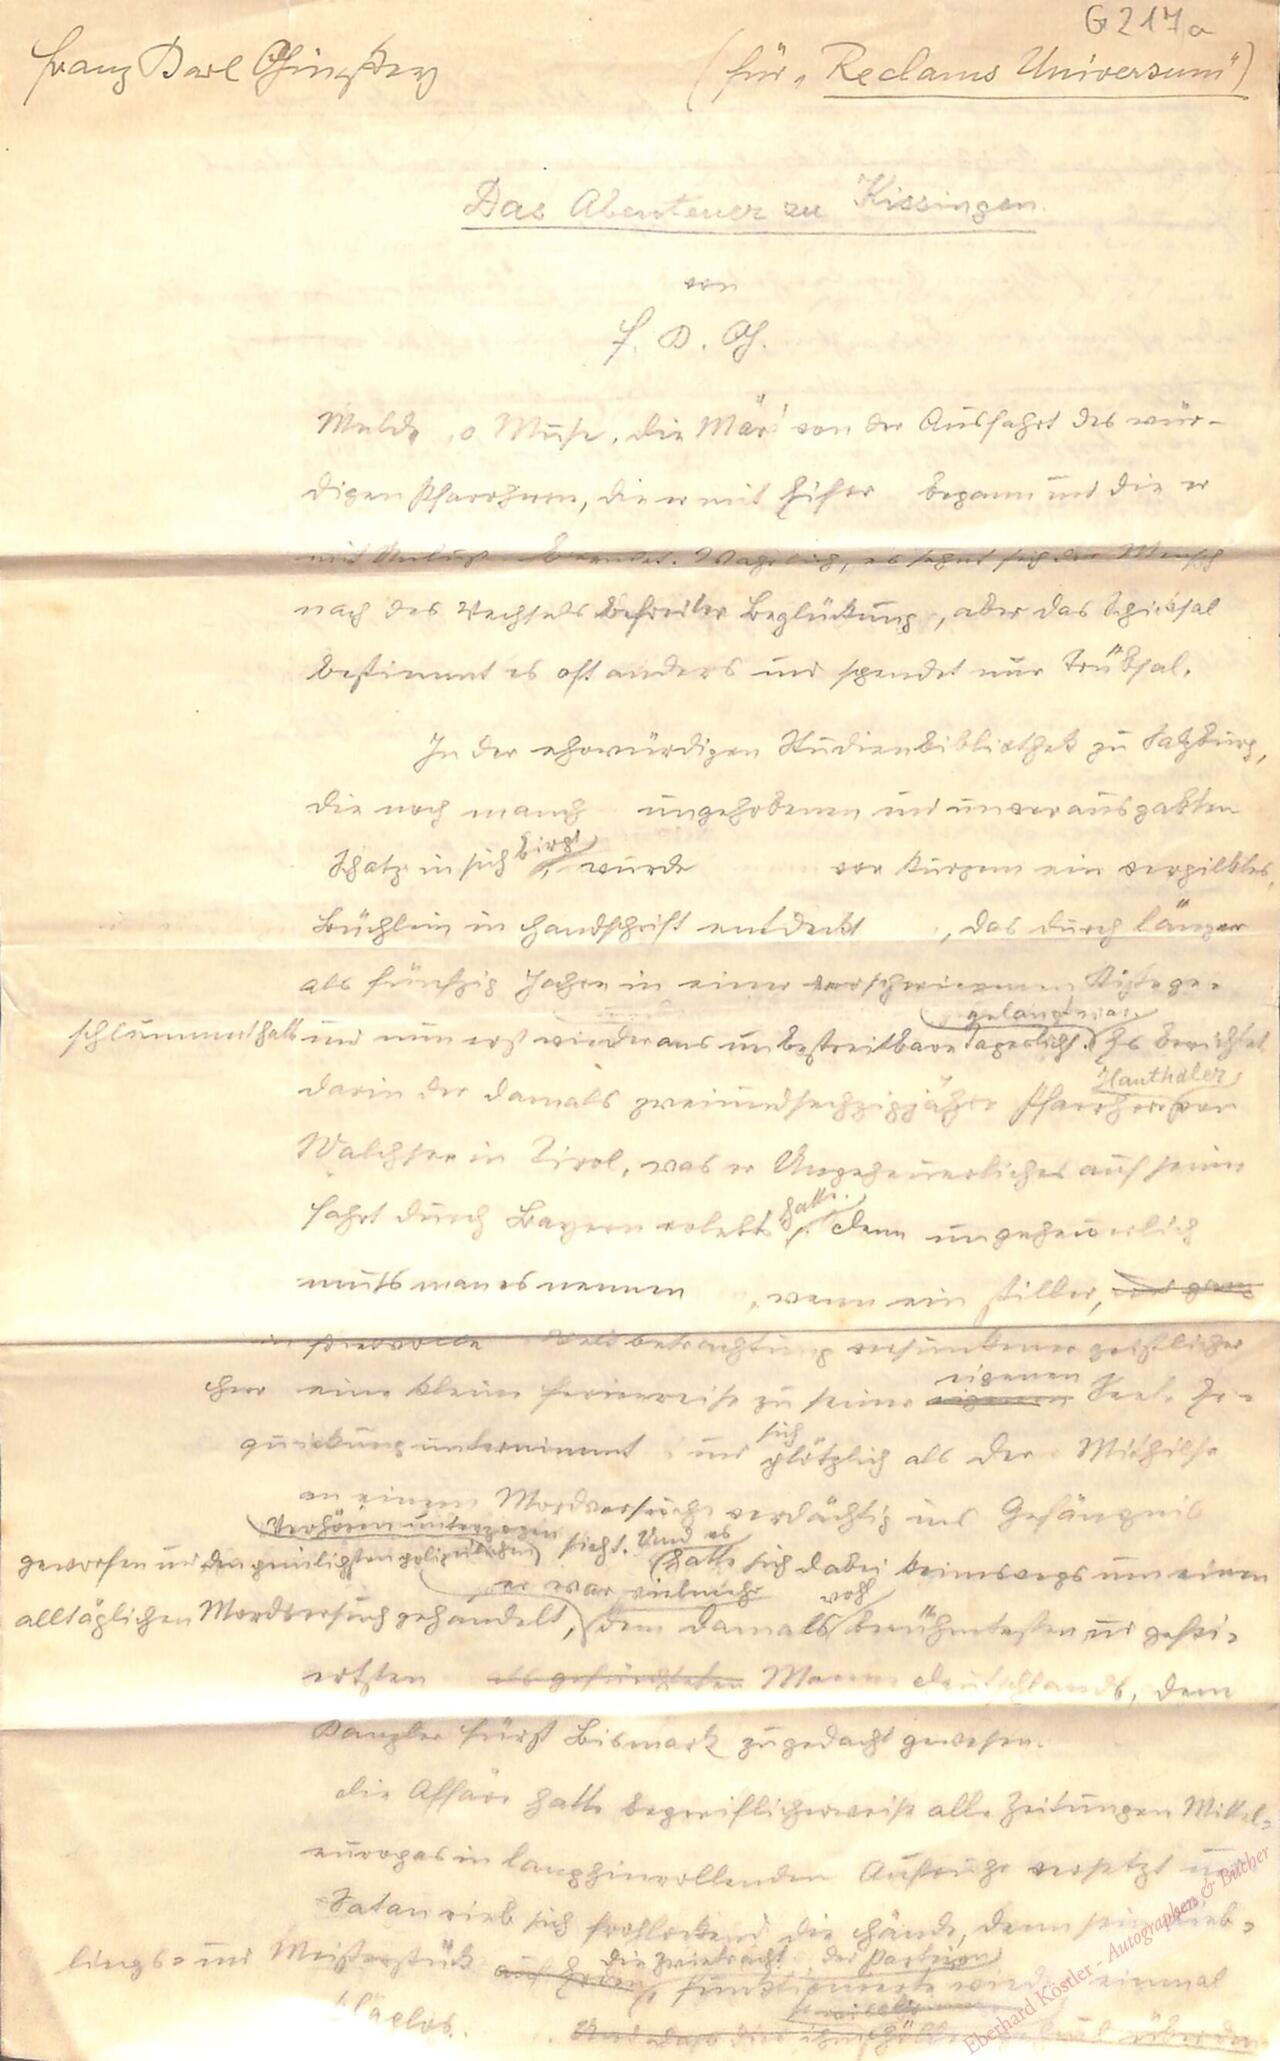 G 217a
Franz Karl Ginzkey (für „Reclams Universum")
Das Abenteuer zu Kissingen.
von
F. K. G.
Melde, o Muse, die Mär von der Ausfahrt des wür-
digen Pfarrherrn, die er mit Eifer begann und die er
mit Unlust beendet. Wahrlich, es sehnt sich der Mensch
nach des Wechsels befreiter Beglückung, aber das Schicksal
bestimmt es oft anders und spendet nur Trübsal.
In der ehrwürdigen Studienbibliothek zu Salzburg,
die noch manch ungehobenen und unverausgabten
Schatz in sich birgt, wurde vor kurzem ein vergilbtes
Büchlein in Handschrift entdeckt, das durch länger
als fünfzig Jahre in einer verschwiegenen Kiste ge-
schlummert hatte und nun erst wieder ans unbestreitbare Tageslicht gelangt war. Es berichtet
darin der damals zweiundsechzigjährige Pfarrherr Hauthaler von
Walchsee in Tirol, was er Ungeheuerliches auf seiner
Fahrt durch Bayern erlebt hatte. Denn ungeheuerlich
muß man es nennen, wenn ein stiller, und ganz
in friedvolle Weltbetrachtung versunkener geistlicher
Herr eine kleine Ferienreise zu seiner eigenen Seele Er-
quickung unternimmt und sich plötzlich als der Mithilfe
an einem Mordversuche verdächtig ins Gefängnis
geworfen und den peinlichsten polizeilichen Verhören unterzogen sieht. Und es hatte sich dabei keineswegs um einen
alltäglichen Mordversuch gehandelt, er war vielmehr dem damals wohl berühmtesten und gefei-
ertsten als gefürchteten Manne Deutschlands, dem
Kanzler Fürst Bismark zugedacht gewesen.
Die Affäre hatte begreiflicherweise alle Zeitungen Mittel-
europas in langhinrollenden Aufruhr versetzt und
Satan rieb sich frohlockend die Hände, denn sein Lieb-
lings- und Meisterstück auf Erden, die Zwietracht der Parteien, funktionierte wieder einmal
klaglos.
Eberhard Köstler - Autographen & Bücher